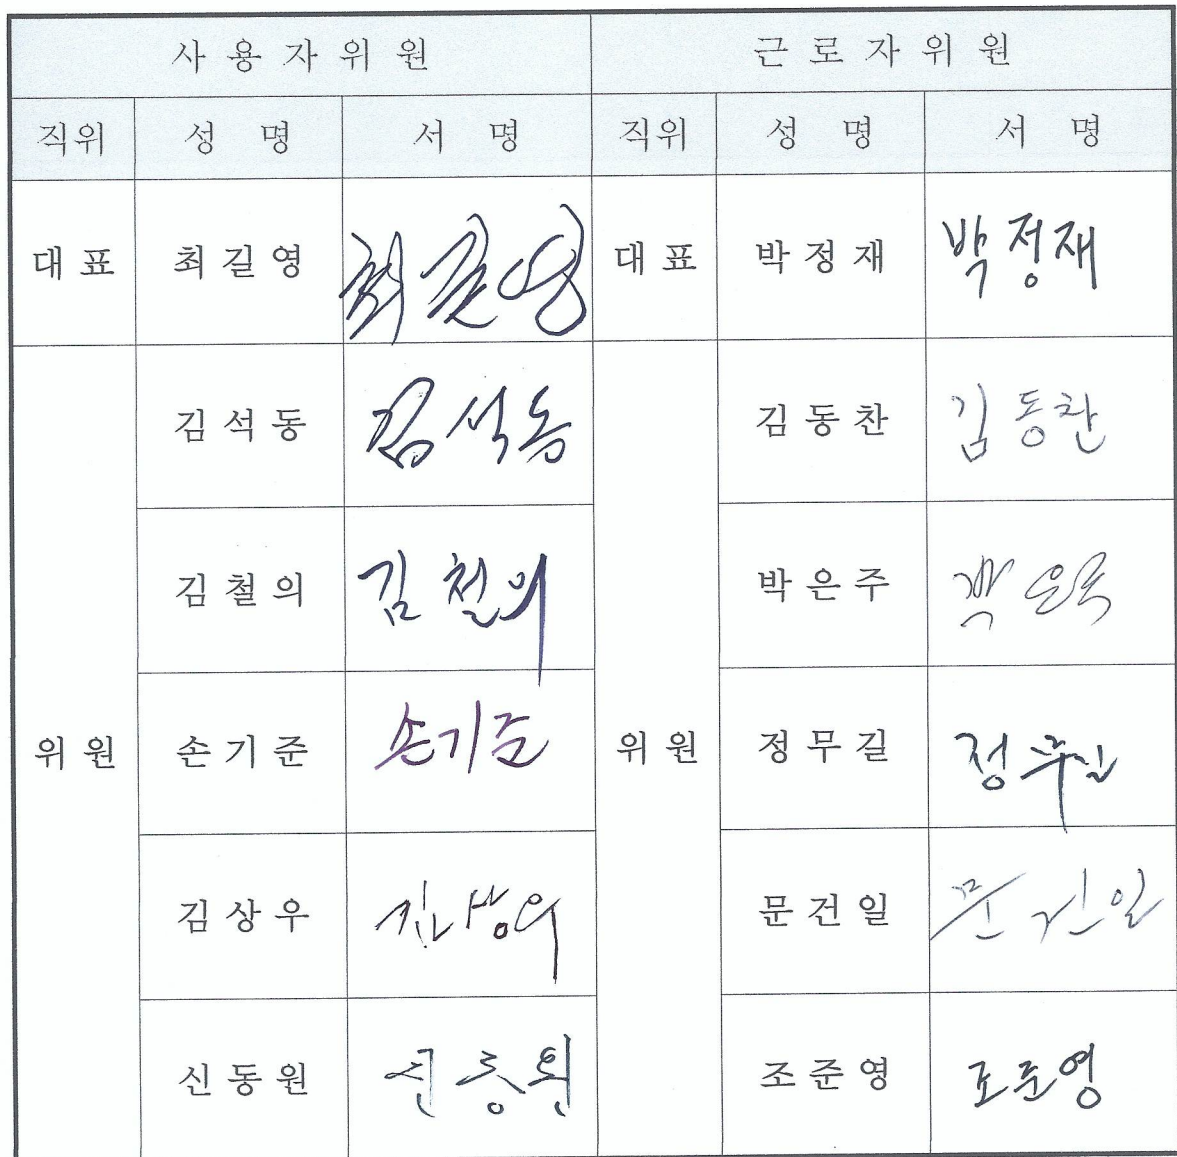 사용자위원 근로자위원
직위 성 명 서 명 직위 성 명 서 명
대표 최길영 최길영 대표 박정재 박정재
김석동 김석동 김동찬 김동찬
김철의 김철의 박은주 박은주
위원 손기준 손기준 위원 정무길 정무길
김상우 김상우 문건일 문건일
신동원 신동원 조준영 조준영